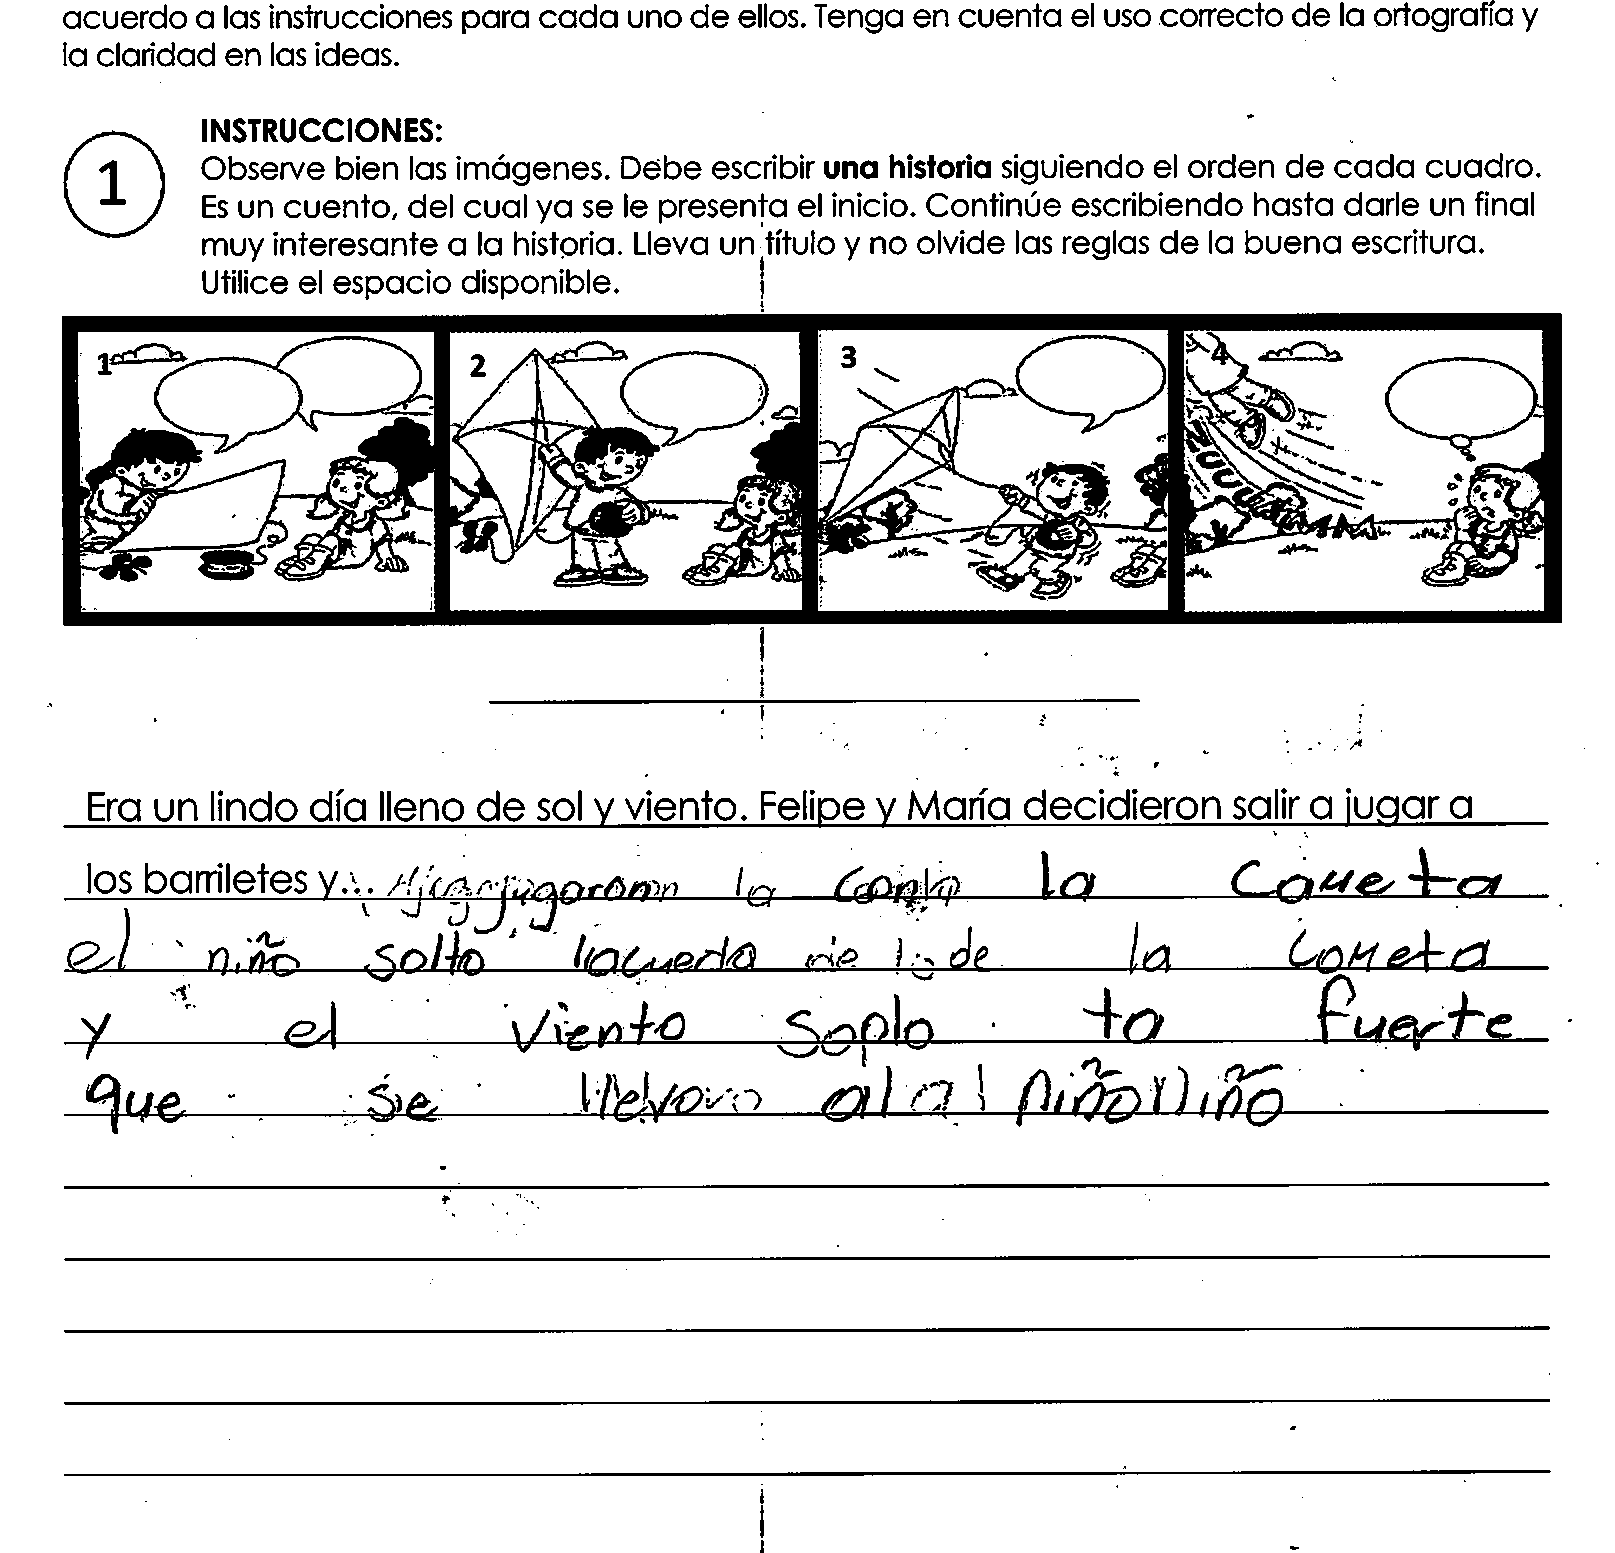 acuerdo a las instrucciones para cada uno de ellos. Tenga en cuenta el uso correcto de la ortografía y
la claridad en las ideas.
1
INSTRUCCIONES:
Observe bien las imágenes. Debe escribir una historia siguiendo el orden de cada cuadro.
Es un cuento, del cual ya se le presenta el inicio. Continúe escribiendo hasta darle un final
muy interesante a la historia. Lleva un título y no olvide las reglas de la buena escritura.
Utilice el espacio disponible.
1 2 3 4
Era un lindo día lleno de sol y viento. Felipe y María decidieron salir a jugar a
los barriletes y... jugaron la la cometa
el niño solto lacuerda de la de la cometa
y el viento soplo ta fuerte
que se llevoro al al niño niño